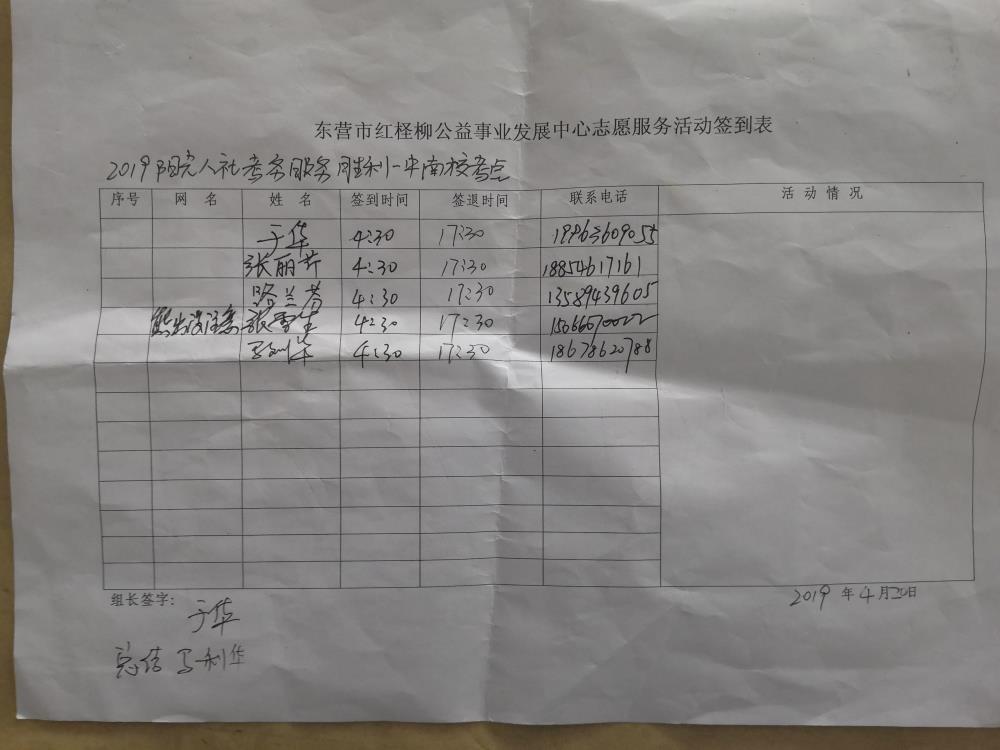 东营市红柽柳公益事业发展中心志愿服务活动签到表
2019阳光人社考务服务胜利一中南校考点
序号 网 名 姓 名 签到时间 签退时间 联系电话 活 动 情 况
于华 4:30 17:30 19963609055
张丽芹 4:30 17:30 18854617161
路兰芳 4:30 17:30 13589439605
熊出没注意 张雪生 4:30 17:30 15066070022
马利华 4:30 17:30 18678620788
组长签字：
于华
2019 年 4 月 20日
总结 马利华